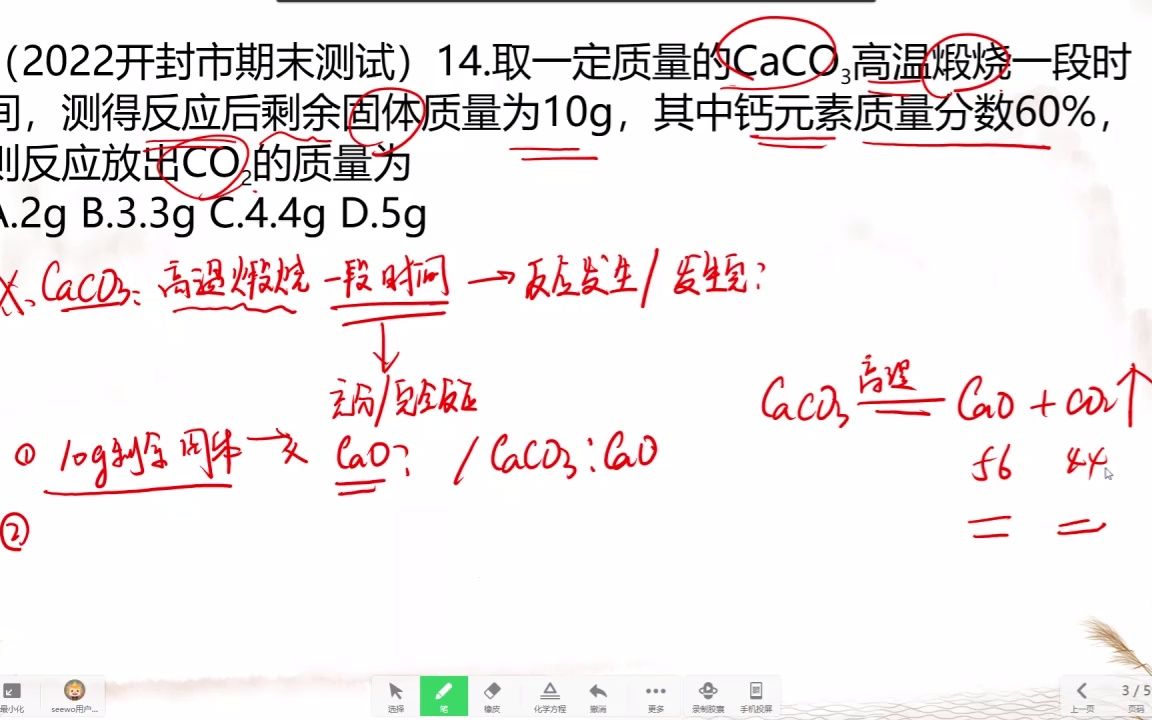 （2022开封市期末测试）14.取一定质量的CaCO₃高温煅烧一段时
间，测得反应后剩余固体质量为10g，其中钙元素质量分数60%，
则反应放出CO₂的质量为
A.2g B.3.3g C.4.4g D.5g
CaCO₃: 高温煅烧 一段时间 → 反应发生/发生完?
充分/完全反应
CaCO₃ 高温 CaO + CO₂↑
① 10g剩余固体 → CaO? / CaCO₃: CaO
56 44
②
最小化 seewo用户... 选择 笔 橡皮 化学方程 撤消 更多 录制胶囊 手机投屏 上一页 3 / 5 页码